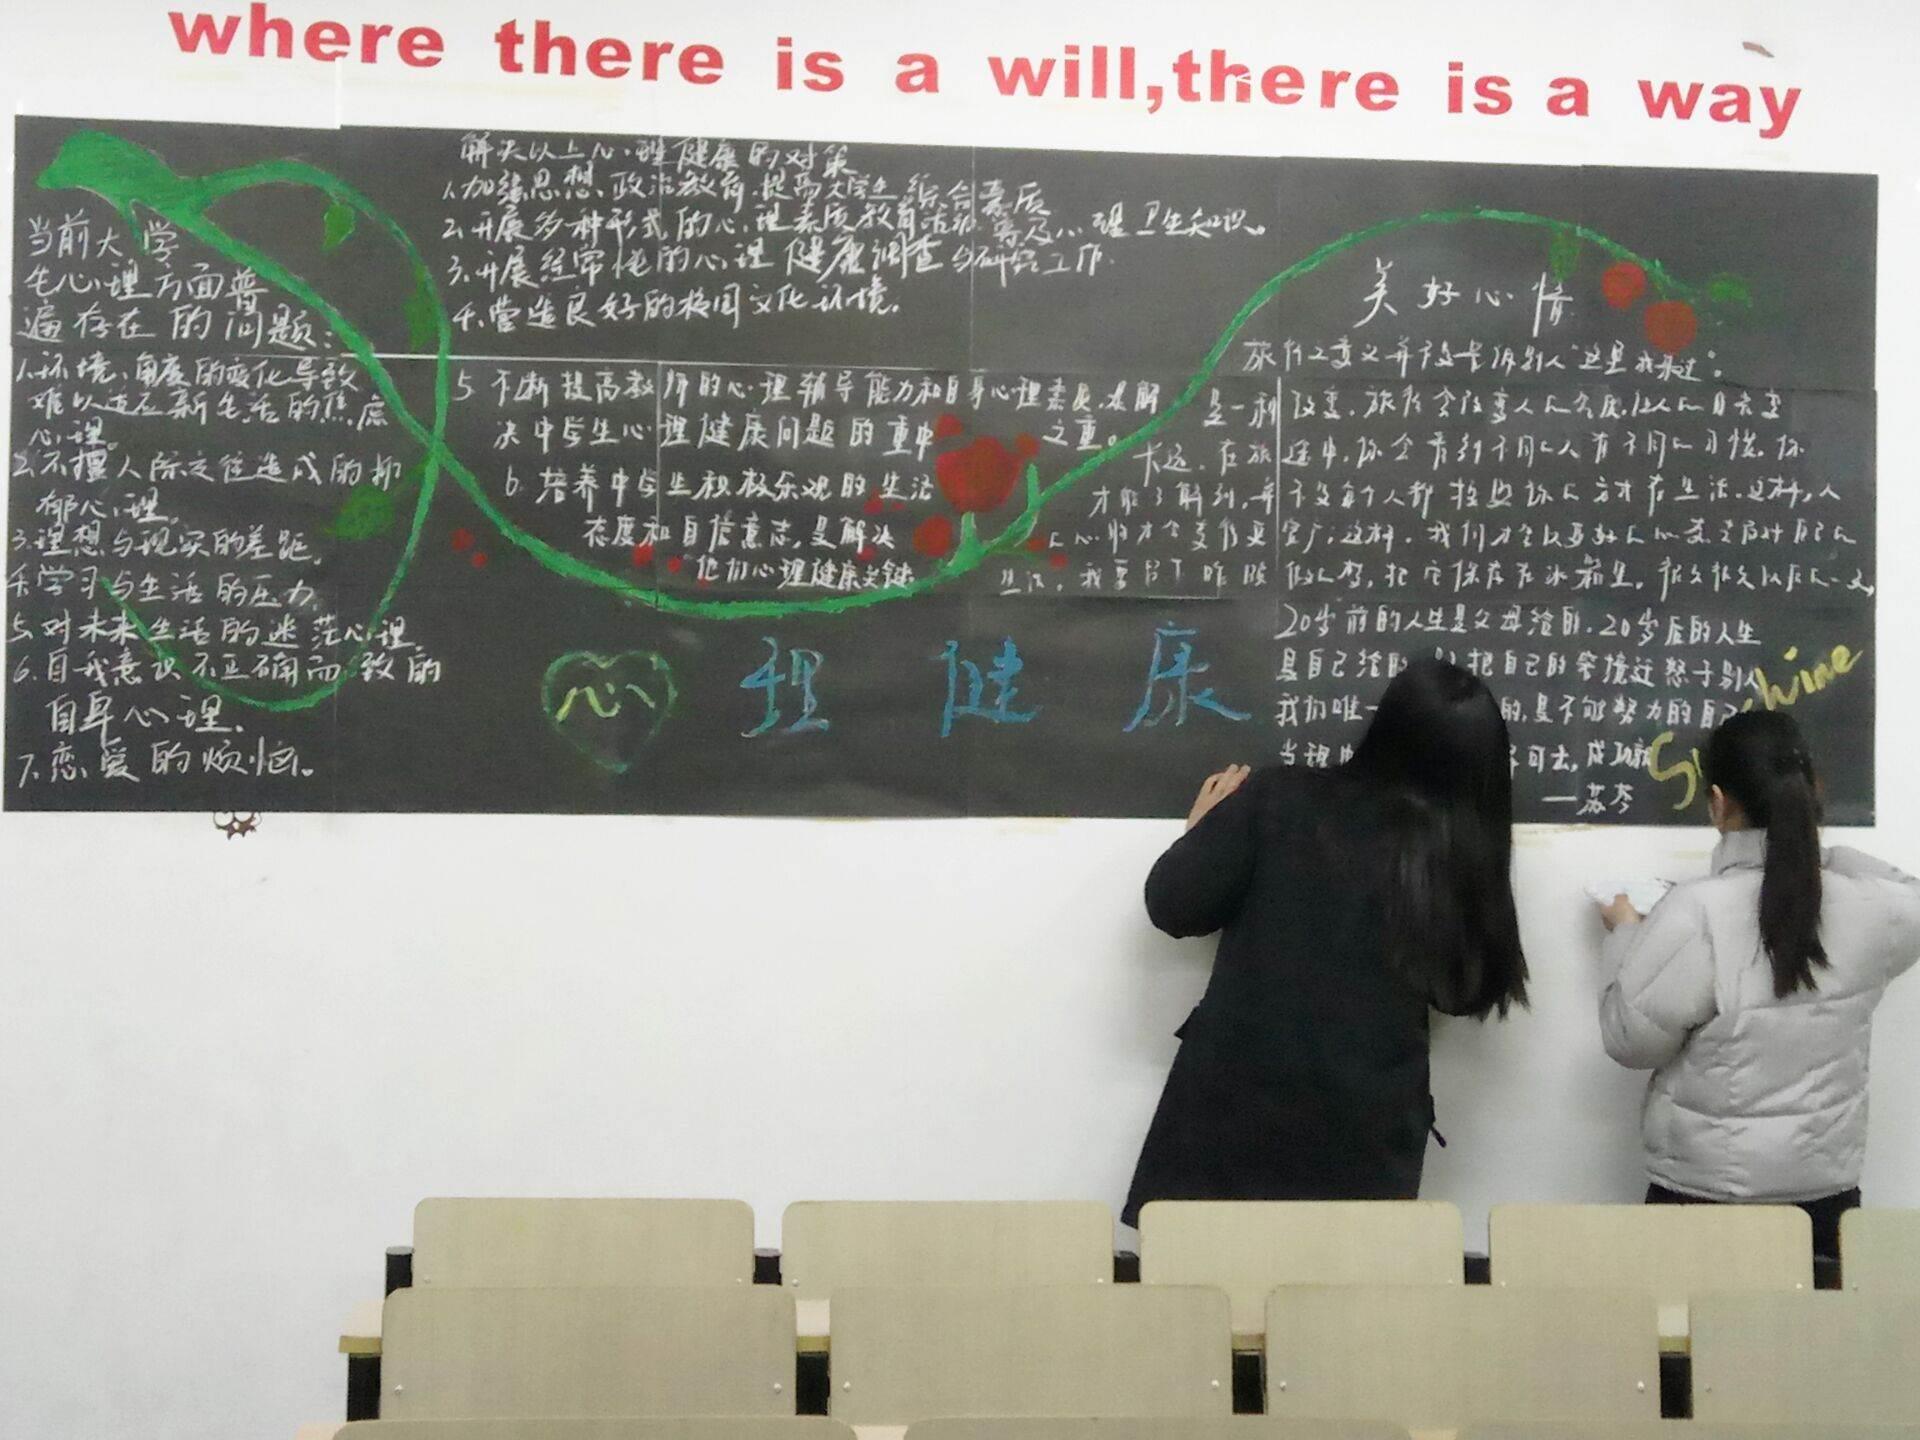 where there is a will,there is a way
当前大学
生心理方面普
遍存在的问题:
1.环境、角度的变化导致
难以适应新生活的焦虑
心理。
2.不擅人际交往造成的抑
郁心理。
3.理想与现实的差距。
4.学习与生活的压力
5.对未来生活的迷茫心理
6.自我意识不正确而致的
自卑心理.
7.恋爱的烦恼。
解决以上心理健康的对策
1.加强思想、政治教育,提高大学生综合素质
2.开展多种形式的心理素质教育活动 普及心理卫生知识。
3.开展经常性的心理健康调查与研究工作.
4.营造良好的校园文化环境。
5 不断提高教师的心理辅导能力和自身心理素质,是解
决中学生心理健康问题的重中之重。
6.培养中学生积极乐观的生活
态度和自信意志,是解决
他们心理健康关键
心理健康
美好心情
旅行之意义并不是告诉别人"这里我来过"
是一种改变,旅行会改变人的
途中,你会看到不同的人有不同的习惯,你
才能了解到,并不是每个人都按照你的方式在生活,这样,人
的心胸才会变得更宽广;这样,我们才会以更好的心态去面对自己的
生活。
20岁前的人生是父母给的,20岁后的人生
是自己给的 把自己的窘境迁怒于别人
我们唯一 的,是不够努力的自己
可去,成功
—苏芩
Sunshine